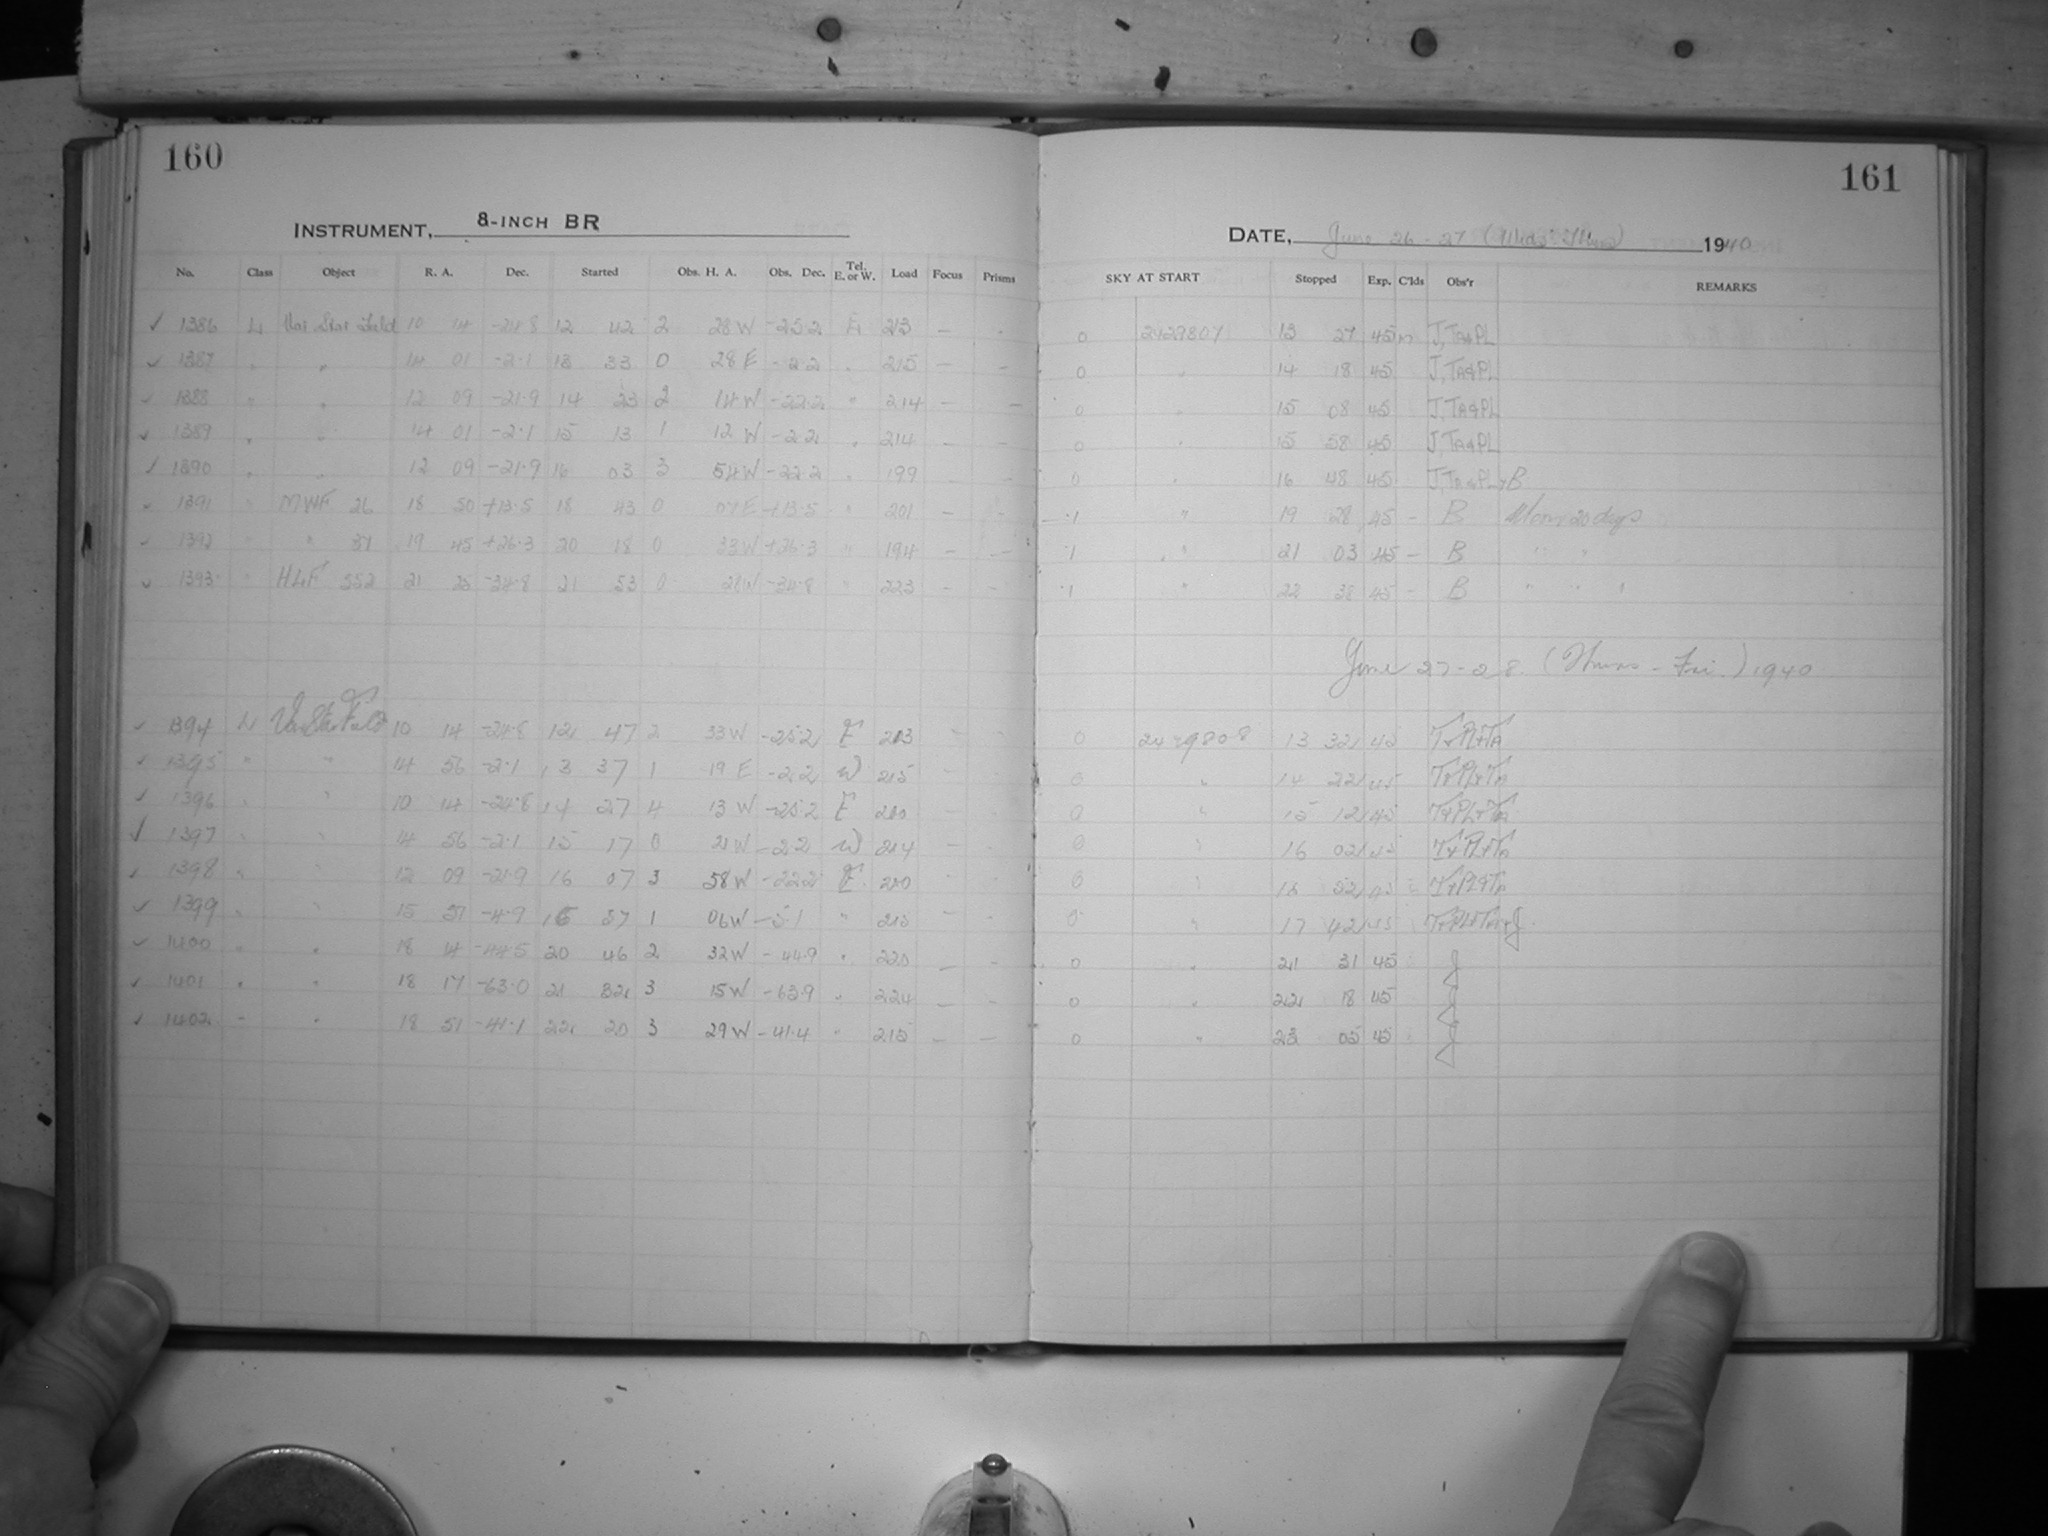 160
INSTRUMENT, 8-INCH BR
No. Class Object R. A. Dec. Started Obs. H. A. Obs. Dec. Tel. E. or W. Load Focus Prisms
✓ 1386 L Var Star Field 10 14 -24.8 12 42 2 28 W -25.2 E 213 —
✓ 1387 " " 14 01 -2.1 13 33 0 28 E -2.2 " 215 — —
✓ 1388 " " 12 09 -21.9 14 23 2 14 W -22.2 " 214 — —
✓ 1389 " " 14 01 -2.1 15 13 1 12 W -2.2 " 214 — —
✓ 1390 " " 12 09 -21.9 16 03 3 54 W -22.2 " 199 — —
✓ 1391 " MWF 26 18 50 +13.5 18 43 0 07 E +13.5 " 201 — —
✓ 1392 " " 37 19 45 +26.3 20 18 0 33 W +26.3 " 194 — —
✓ 1393 " HLF 552 21 25 -34.8 21 53 0 28 W -34.8 " 223 — —
✓ 1394 L Var Star Field 10 14 -24.8 12 47 2 33 W -25.2 E 213
✓ 1395 " " 14 56 -2.1 13 37 1 19 E -2.2 W 215
✓ 1396 " " 10 14 -24.8 14 27 4 13 W -25.2 E 200
✓ 1397 " " 14 56 -2.1 15 17 0 21 W -2.2 W 214
✓ 1398 " " 12 09 -21.9 16 07 3 58 W -22.2 E 200
✓ 1399 " " 15 57 -4.9 16 57 1 06 W -5.1 " 215
✓ 1400 " " 18 14 -44.5 20 46 2 32 W -44.9 " 220 — —
✓ 1401 " " 18 17 -63.0 21 32 3 15 W -63.9 " 224 — —
✓ 1402 " " 18 51 -41.1 22 20 3 29 W -41.4 " 215 — —
161
DATE, June 26-27 (Wed-Thurs) 1940
SKY AT START Stopped Exp. C'lds Obs'r REMARKS
0 2429807 13 27 45m J,TA&PL
0 " 14 18 45 J,TA&PL
0 " 15 08 45 J,TA&PL
0 " 15 58 45 J,TA&PL
0 " 16 48 45 J,TA&PL&B
1 " 19 28 45 — B Moon 20 days
1 " 21 03 45 — B " "
1 " 22 38 45 — B " " "
June 27-28 (Thurs - Fri.) 1940
0 2429808 13 32 45
0 " 14 22 45
0 " 15 12 45
0 " 16 02 45
0 " 16 52 45
0 " 17 42 45
0 " 21 31 45 J
0 " 22 18 45 J
0 " 23 05 45 J